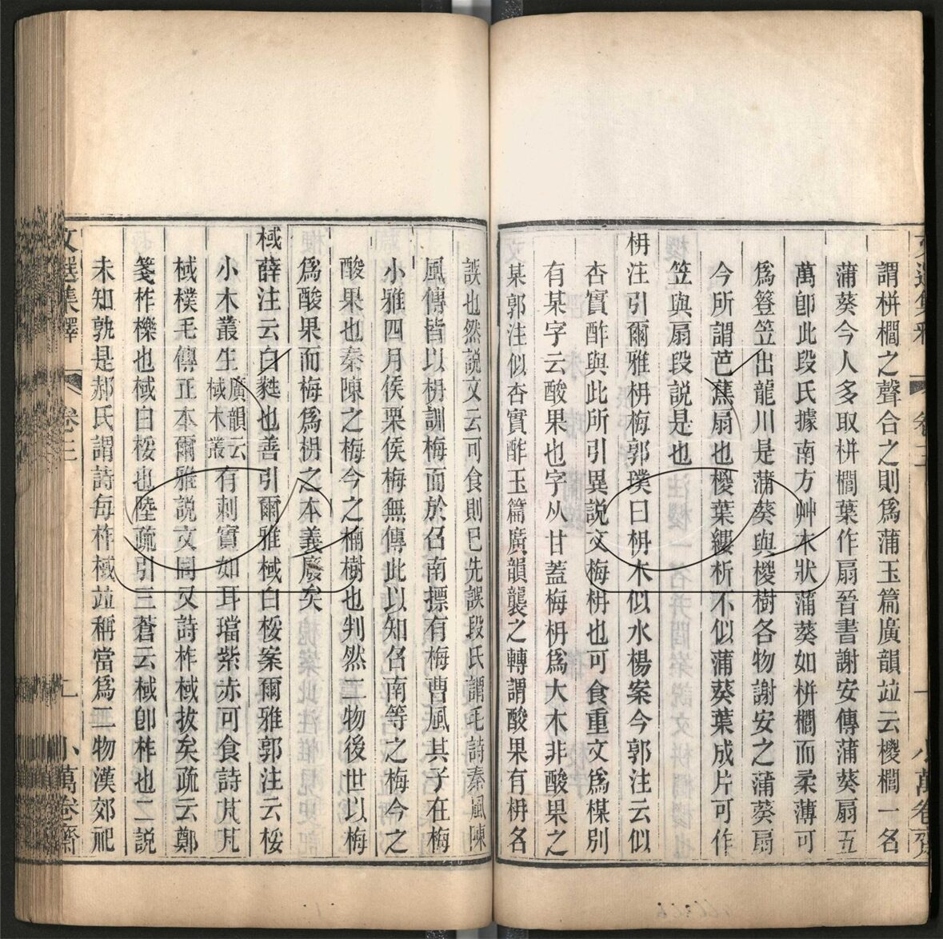 謂栟櫚之聲合之則爲蒲玉篇廣韻竝云椶櫚一名
蒲葵今人多取栟櫚葉作扇晉書謝安傳蒲葵扇五
萬卽此段氏據南方艸木狀蒲葵如栟櫚而柔薄可
爲簦笠出龍川是蒲葵與椶樹各物謝安之蒲葵扇
今所謂芭蕉扇也椶葉縷析不似蒲葵葉成片可作
笠與扇段說是也
枏注引爾雅枏梅郭璞曰枏木似水楊案今郭注云似
杏實酢與此所引異說文梅枏也可食重文爲楳別
有某字云酸果也字从甘蓋梅枏爲大木非酸果之
某郭注似杏實酢玉篇廣韻襲之轉謂酸果有枏名
誤也然說文云可食則已先誤段氏謂毛詩秦風陳
風傳皆以枏訓梅而於召南摽有梅曹風其子在梅
小雅四月侯栗侯梅無傳此以知召南等之梅今之
酸果也秦陳之梅今之楠樹也判然二物後世以梅
爲酸果而梅爲枏之本義廢矣
棫薛注云白蕤也善引爾雅棫白桵案爾雅郭注云桵
小木叢生廣韻云棫木叢有刺實如耳璫紫赤可食詩芃芃
棫樸毛傳正本爾雅說文同又詩柞棫拔矣疏云鄭
箋柞櫟也棫白桵也陸疏引三蒼云棫卽柞也二說
未知孰是郝氏謂詩每柞棫竝稱當爲二物漢郊祀
文選集釋
卷三
七
小萬卷齋